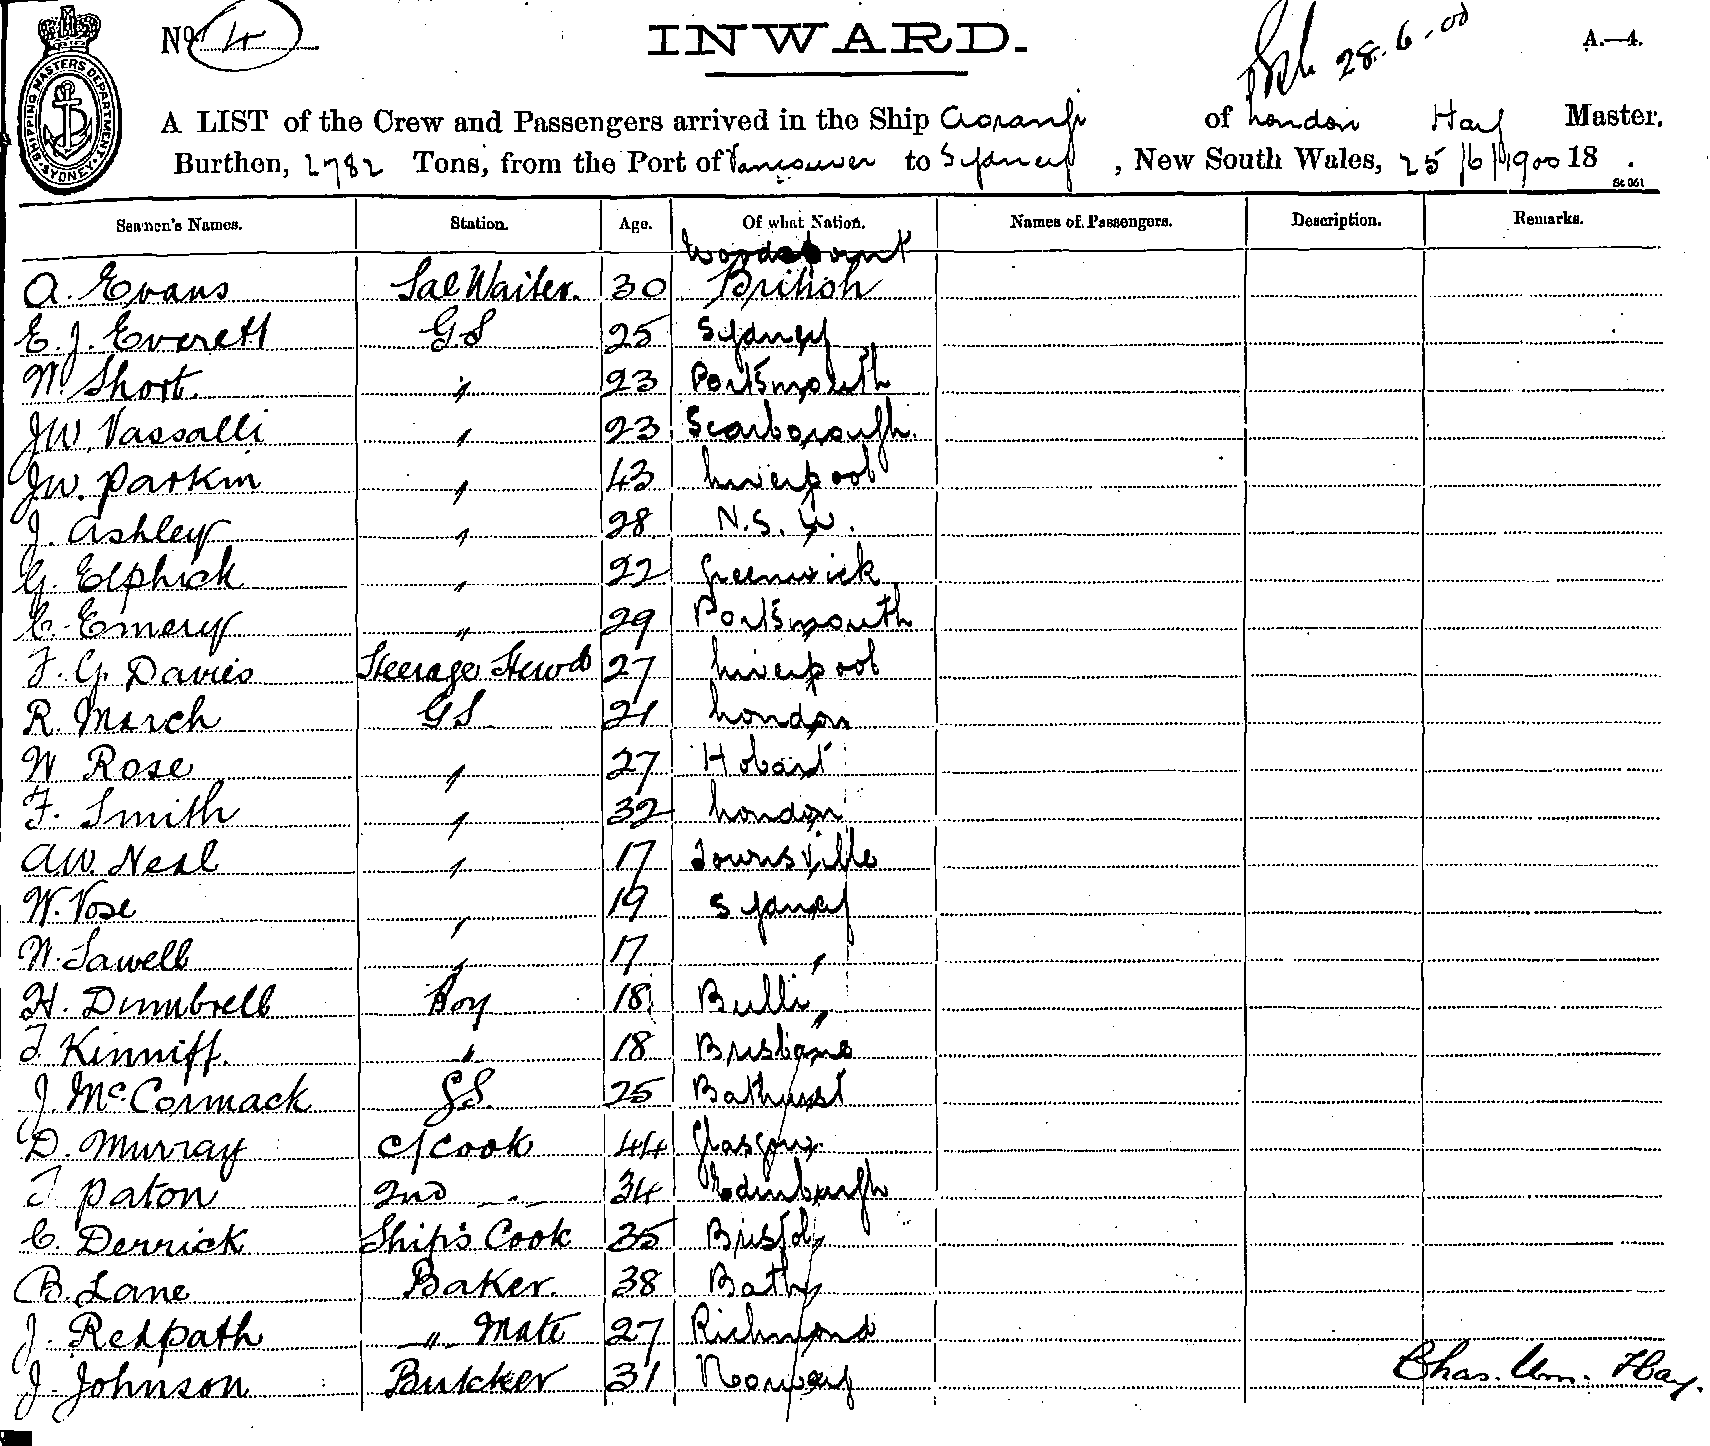 No. 4
INWARD.
28-6-00
A.—4.
SHIPPING MASTERS DEPARTMENT SYDNEY
A LIST of the Crew and Passengers arrived in the Ship Aorangi of London Hay Master.
Burthen, 2782 Tons, from the Port of Vancouver to Sydney, New South Wales, 25/6/1900 18 .
St 061
Seamen's Names. Station. Age. Of what Nation. Names of Passengers. Description. Remarks.
A. Evans Sal Waiter. 30 British
E. J. Everett GS 25 Sydney
W. Short. " 23 Portsmouth
JW. Vassalli " 23 Scarborough.
JW. Parkin " 43 Liverpool
J. Ashley " 28 N.S.W.
G. Elphick " 22 Greenwich
C. Emery " 29 Portsmouth
F. G. Davies Steerage Stewd 27 Liverpool
R. March GS 21 London
W Rose " 27 Hobart
F. Smith " 32 London
AW. Neal " 17 Townsville
W. Vose " 19 Sydney
W. Sawell " 17 "
H. Dumbrell Boy 18 Bulli
T. Kinniff. " 18 Brisbane
J. McCormack GS. 25 Bathurst
D. Murray C/Cook 44 Glasgow
T Paton 2nd -"- 34 Edinburgh
C. Derrick Ship's Cook 35 Bristol
B. Lane Baker. 38 Bath
J. Redpath -"- Mate 27 Richmond
J. Johnson Butcher 31 Norway
Chas. Wm. Hay.